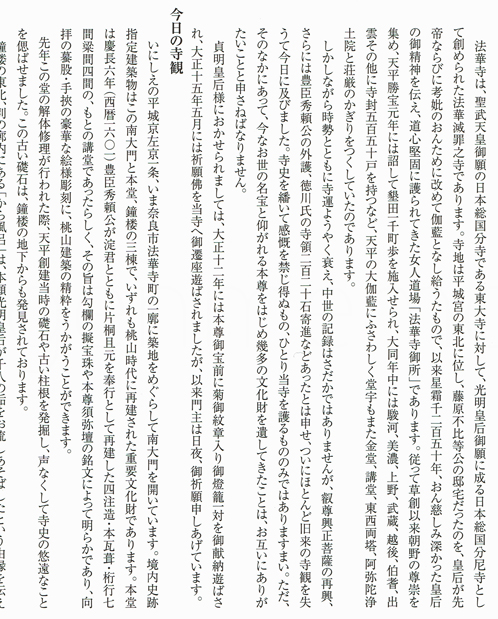 法華寺は、聖武天皇御願の日本総国分寺である東大寺に対して、光明皇后御願に成る日本総国分尼寺とし
て創められた法華滅罪之寺であります。寺地は平城宮の東北に位し、藤原不比等公の邸宅だったのを、皇后が先
帝ならびに考妣のおんために改めて伽藍となし給うたもので、以来星霜千二百五十年、おん慈しみ深かった皇后
の御精神を伝え、道心堅固に護られてきた女人道場「法華寺御所」であります。従って草創以来朝野の尊崇を
集め、天平勝宝元年には詔して墾田一千町歩を施入せられ、大同年中には駿河、美濃、上野、武蔵、越後、伯耆、出
雲その他に寺封五百五十戸を持つなど、天平の大伽藍にふさわしく堂宇もまた金堂、講堂、東西両塔、阿弥陀浄
土院と荘厳のかぎりをつくしていたのであります。
しかしながら時勢とともに寺運ようやく衰え、中世の記録はさだかではありませんが、叡尊興正菩薩の再興、
さらには豊臣秀頼公の外護、徳川氏の寺領二百二十石寄進などあったとは申せ、ついにほとんど旧来の寺観を失
うて今日に及びました。寺史を繙いて感慨を禁じ得ぬもの、ひとり当寺を護るもののみではありますまい。ただ、
そのなかにあって、今なお世の名宝と仰がれる本尊をはじめ幾多の文化財を遺してきたことは、お互いにありが
たいことと申さねばなりません。
貞明皇后様におかせられましては、大正十二年には本尊御宝前に菊御紋章入り御燈籠一対を御献納遊ばさ
れ、大正十五年五月には祈願佛を当寺へ御遷座遊ばされましたが、以来門主は日夜、御祈願申しあげています。
今日の寺観
いにしえの平城京左京一条、いま奈良市法華寺町の一廓に築地をめぐらして南大門を開いています。境内史跡
指定建築物はこの南大門と本堂、鐘楼の三棟で、いずれも桃山時代に再建された重要文化財であります。本堂
は慶長六年(西暦一六〇一)豊臣秀頼公が淀君とともに片桐且元を奉行として再建した四注造・本瓦葺・桁行七
間梁間四間の、もとの講堂であったらしく、その旨は勾欄の擬宝珠や本尊須弥壇の銘文によって明らかであり、向
拝の蟇股・手挟の豪華な絵様彫刻に、桃山建築の精粋をうかがうことができます。
先年この堂の解体修理が行われた際、天平創建当時の礎石や古い柱根を発掘し、声なくして寺史の悠遠なこと
を偲ばせました。この古い礎石は、鐘楼の地下からも発見されております。
鐘楼の東北、別の廓内にある「から風呂」は、本願光明皇后が千人の垢をお流しあそばしたという由縁を伝え